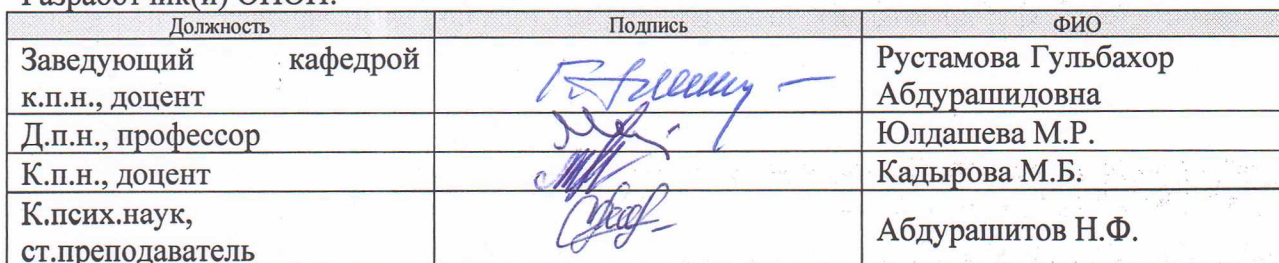 Разработчик(и) ОПОП:
Должность Подпись ФИО
Заведующий кафедрой
к.п.н., доцент
Рустамова Гульбахор
Абдурашидовна
Д.п.н., профессор
Юлдашева М.Р.
К.п.н., доцент
Кадырова М.Б.
К.псих.наук,
ст.преподаватель
Абдурашитов Н.Ф.